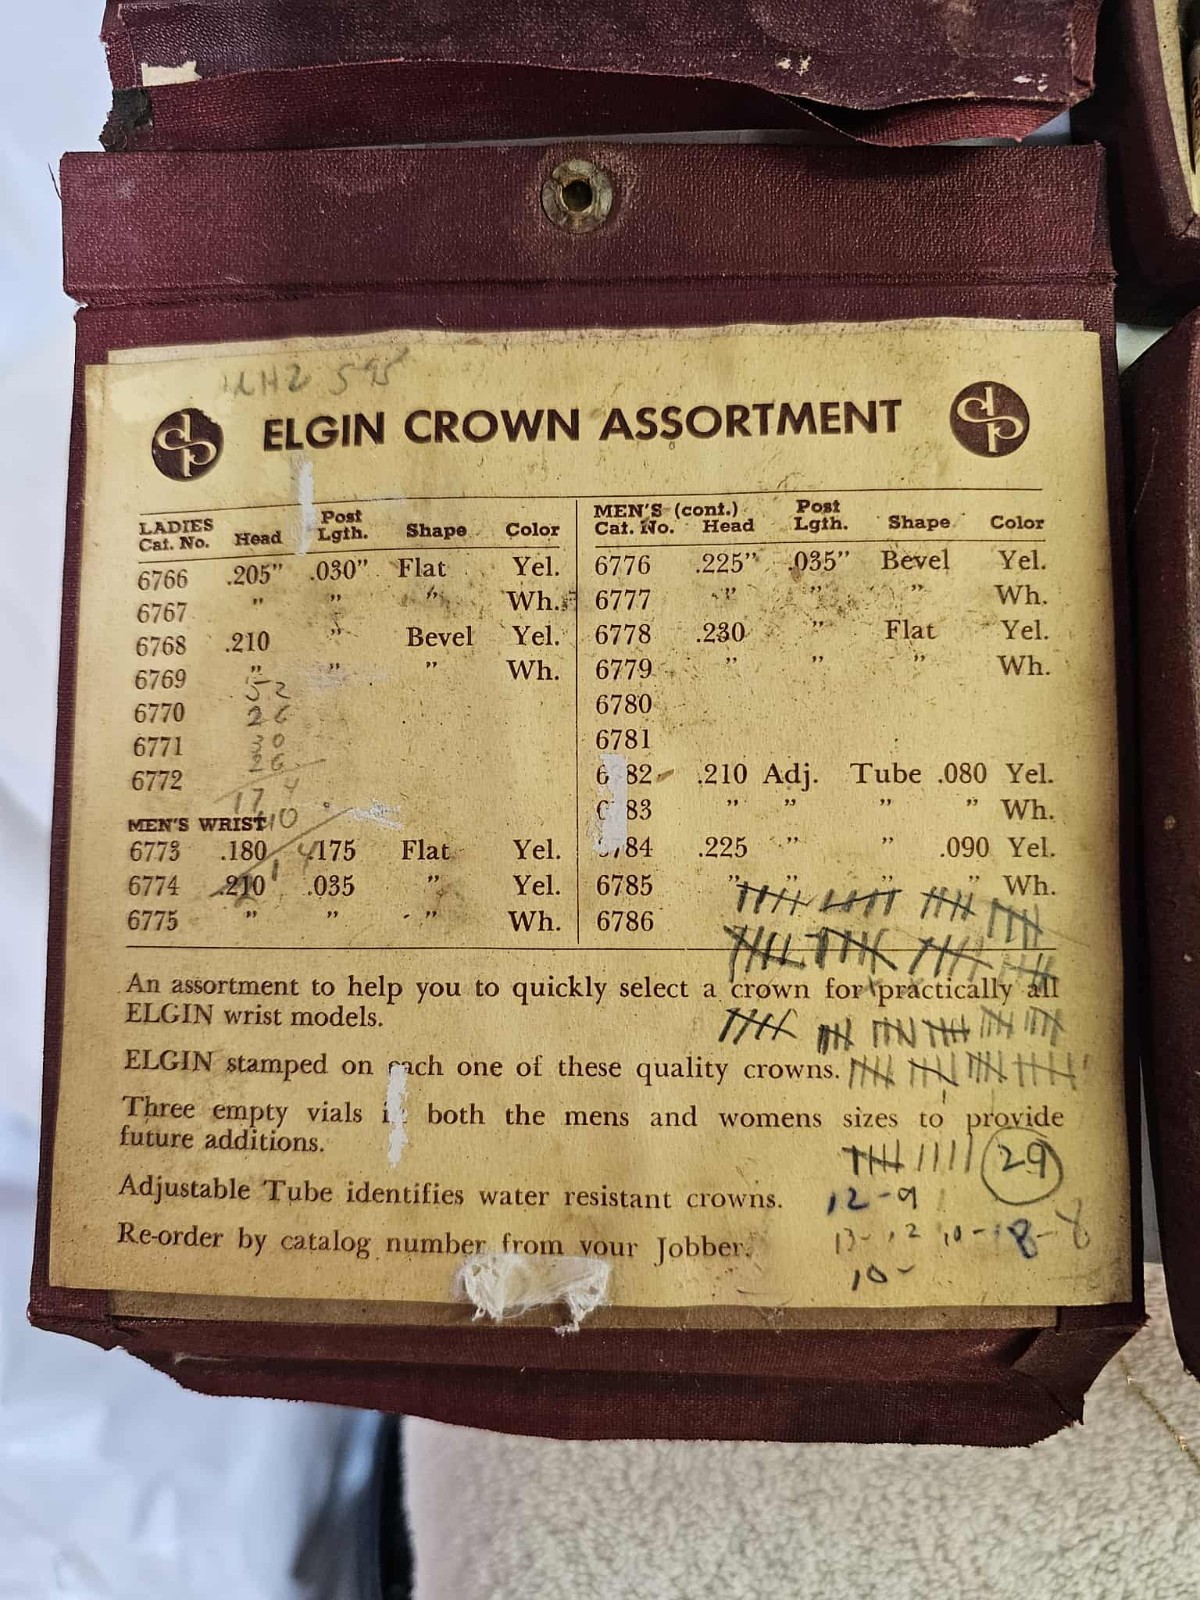 595
ELGIN CROWN ASSORTMENT
LADIES
Cat. No. Head Post Lgth. Shape Color
6766 .205” .030” Flat Yel.
6767 ” ” ” Wh.
6768 .210 ” Bevel Yel.
6769 ” ” ” Wh.
52
6770 26
6771 30
26
6772
MEN'S WRIST
6773 .180 .175 Flat Yel.
6774 .210 .035 ” Yel.
6775 ” ” ” Wh.
MEN'S (cont.)
Cat. No. Head Post Lgth. Shape Color
6776 .225” .035” Bevel Yel.
6777 ” ” ” Wh.
6778 .230 ” Flat Yel.
6779 ” ” ” Wh.
6780
6781
6782 .210 Adj. Tube .080 Yel.
6783 ” ” ” ” Wh.
6784 .225 ” ” .090 Yel.
6785 ” ” ” ” Wh.
6786
An assortment to help you to quickly select a crown for practically all
ELGIN wrist models.
ELGIN stamped on each one of these quality crowns.
Three empty vials in both the mens and womens sizes to provide
future additions.
29
Adjustable Tube identifies water resistant crowns.
12-9
Re-order by catalog number from your Jobber.
13-12 10-8-8
10-